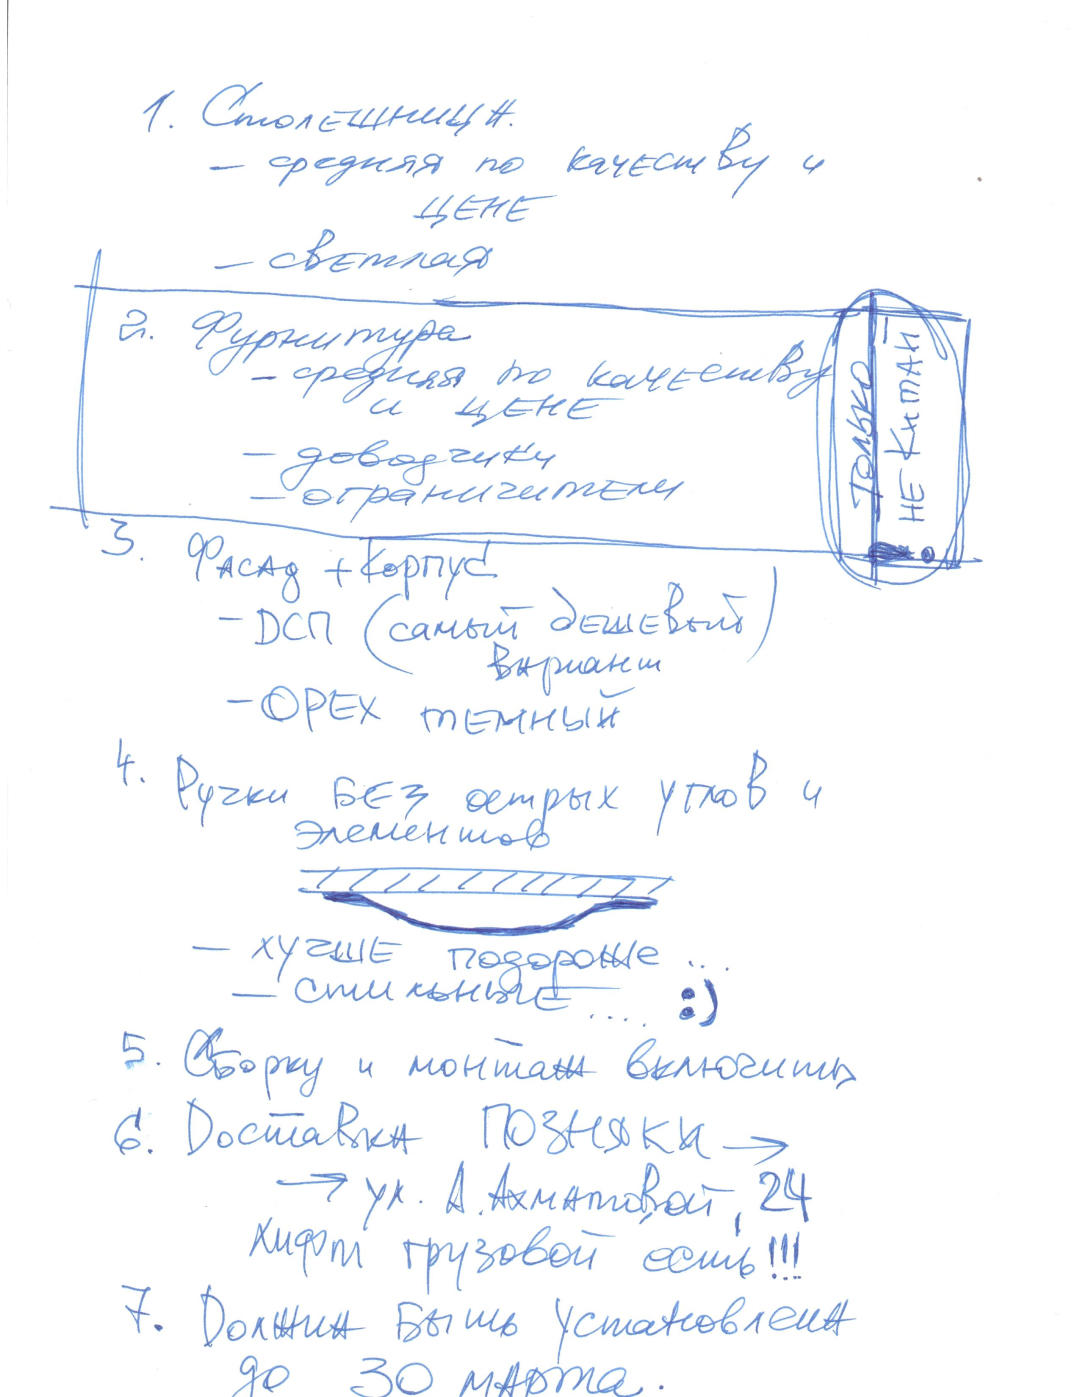 1. Столешница.
– средняя по качеству и
цене
– светлая
2. Фурнитура
– средняя по качеству
и цене
– доводчики
– ограничители
только
не Китай
3. Фасад + Корпус
– ДСП (самый дешевый)
вариант
– орех темный
4. Ручки без острых углов и
элементов
– лучше подороже ...
– стильные .... :)
5. Сборку и монтаж включить
6. Доставка Позняки →
→ ул. А. Ахматовой, 24
лифт грузовой есть!!!
7. Должна быть установлена
до 30 марта.